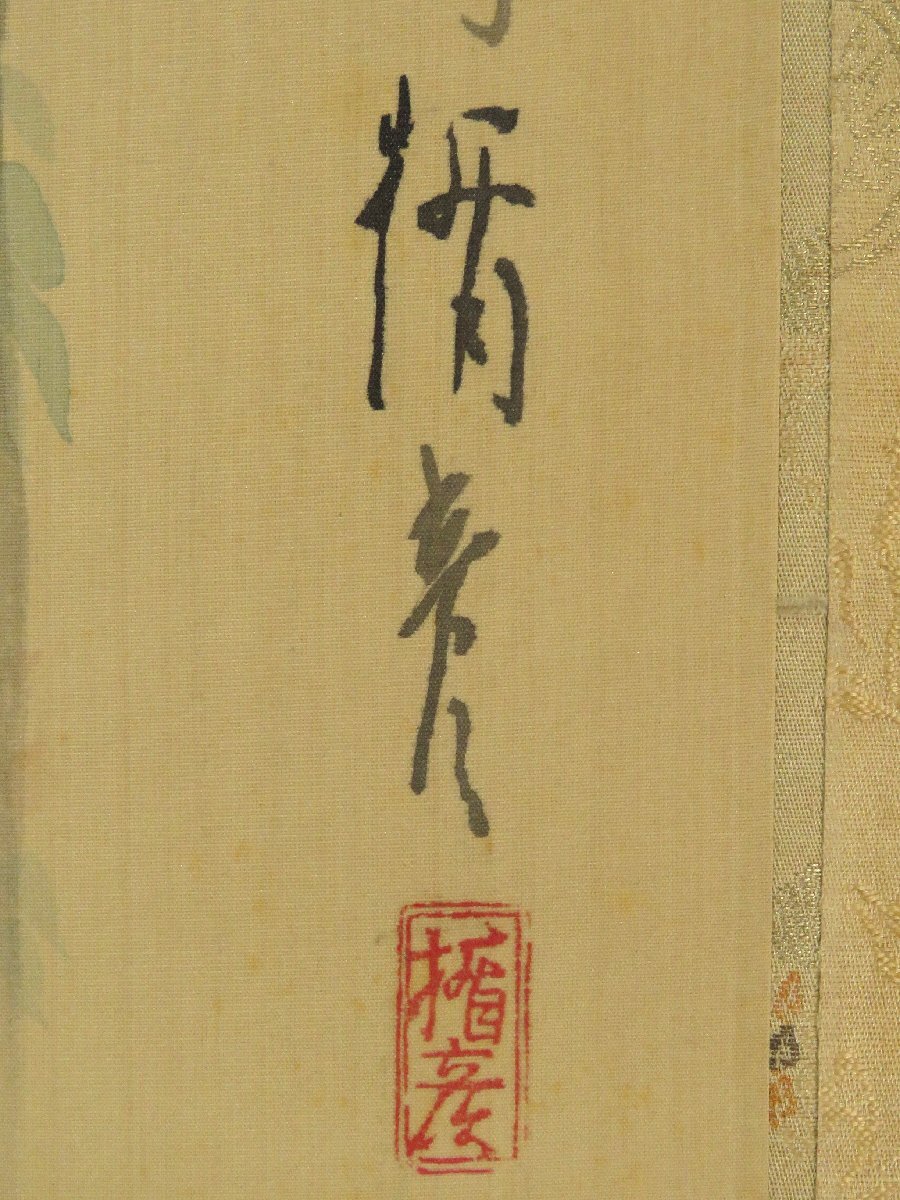 楯彦
楯彦